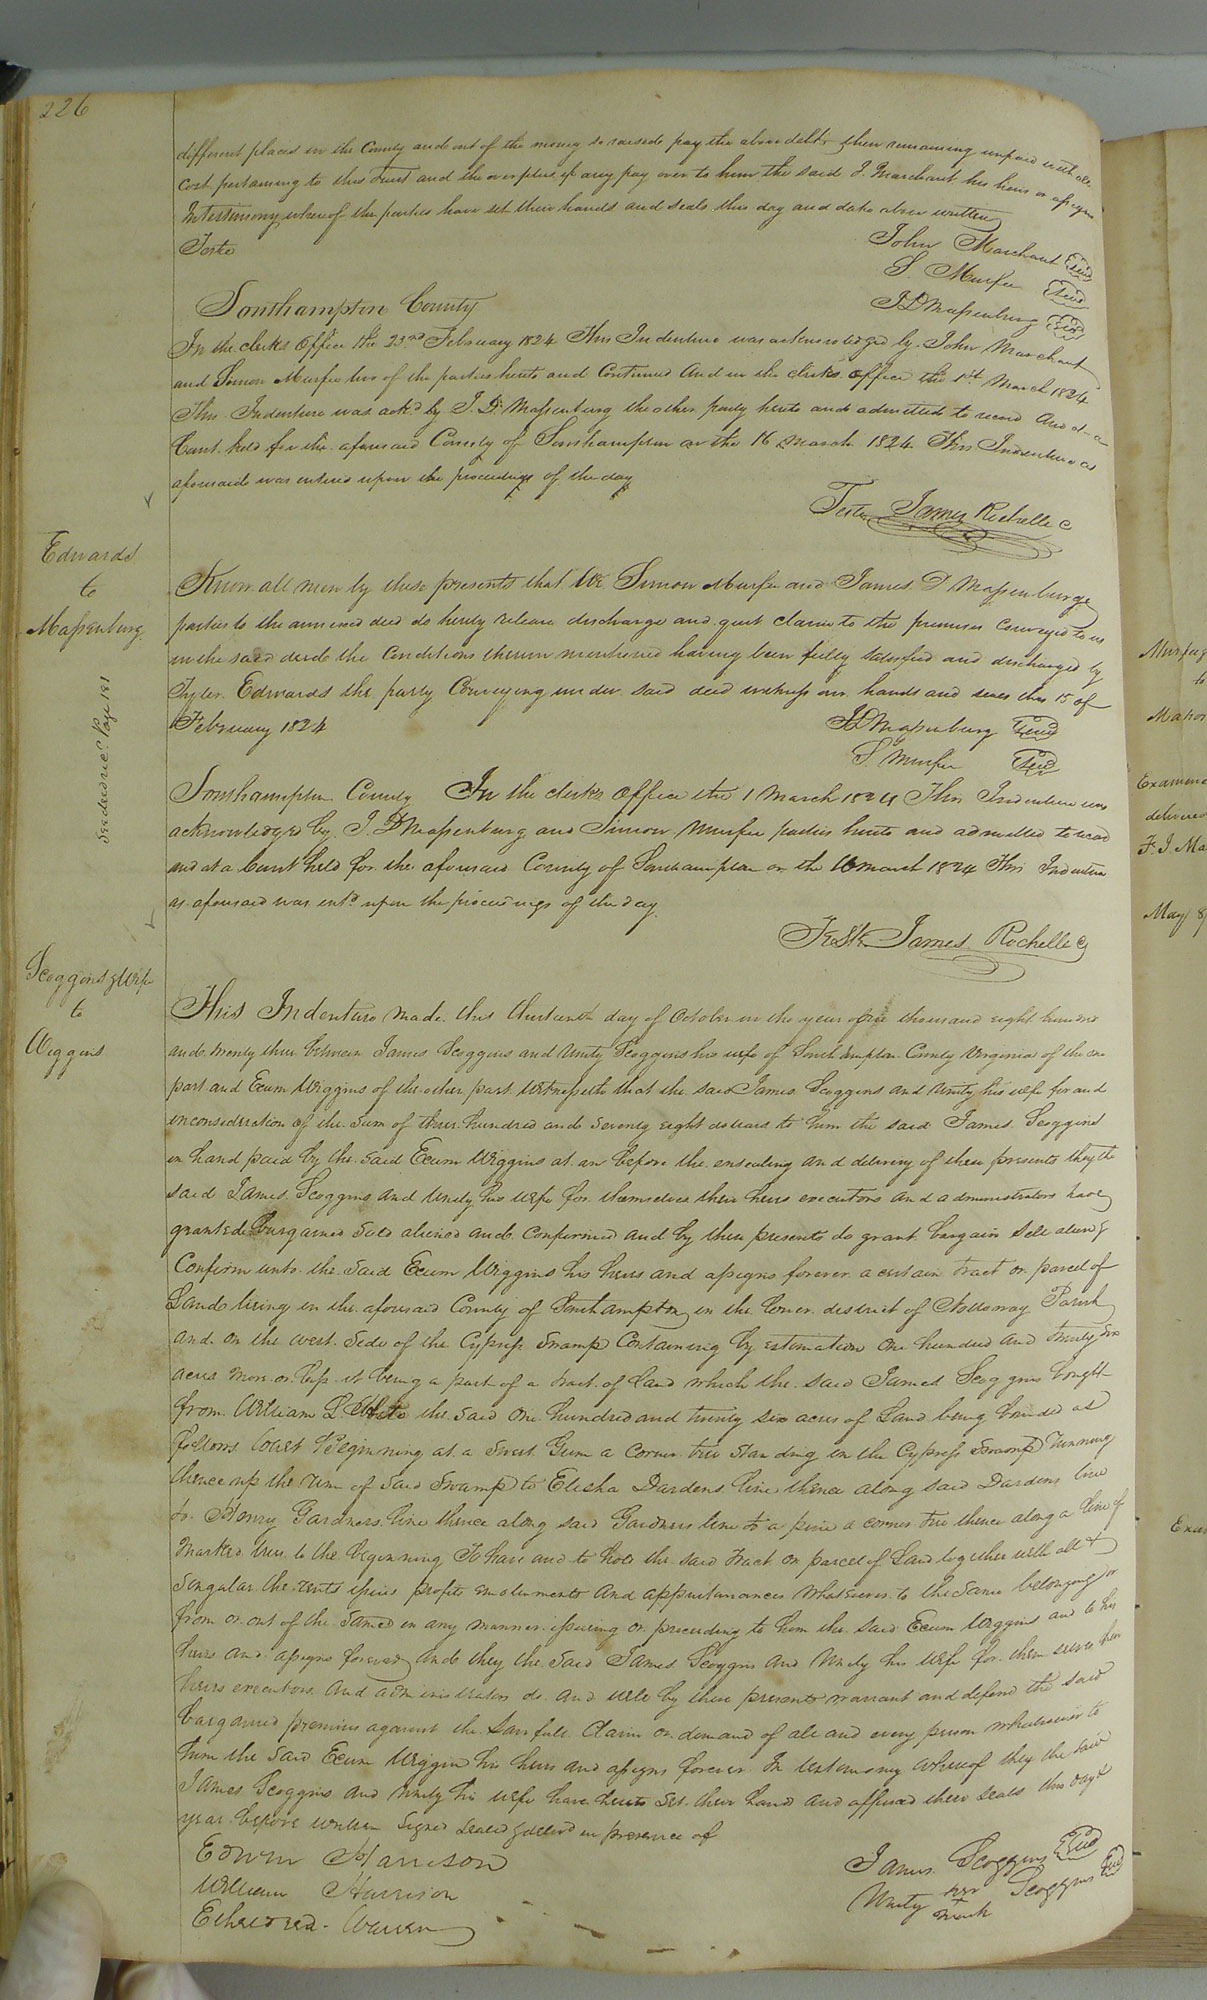 226
different places in the County and out of the money so raised pay the above debts then remaining unpaid with all
cost pertaining to this Trust and the overplus if any pay over to him the said J. Marchant his heirs or assigns
In testimony whereof the parties have set their hands and seals this day and date above written
Teste
John Marchant Seal
S Murfee Seal
J D Massenburg Seal
Southampton County
In the clerks office the 23rd February 1824 This Indenture was acknowledged by John Marchant
and Simon Murfee two of the parties hereto and Continued And in the clerks office the 1st March 1824
This Indenture was ackd by J. D. Massenburg the other party hereto and admitted to record And at a
Court held for the aforesaid County of Southampton on the 16 March 1824 This Indenture as
aforesaid was entered upon the proceedings of the day
Teste James Rochelle C
Edwards
to
Massenburg
Know all men by these presents that We Simon Murfee and James D Massenburg
parties to the annexed deed do hereby release discharge and quit claim to the premises Conveyed to us
in the said deed the Conditions therein mentioned having been fully satisfied and discharged by
Tyler Edwards the party Conveying under said deed witness our hands and seals this 15 of
February 1824
JD Massenburg Seal
S Murfee Seal
Southampton County In the clerks office the 1 March 1824 This Indenture was
acknowledged by J. D Massenburg and Simon Murfee parties hereto and admitted to record
and at a Court held for the aforesaid County of Southampton on the 16 March 1824 This Indenture
as aforesaid was entd upon the proceedings of the day
Teste James Rochelle C
Scoggins & Wife
to
Wiggins
This Indenture made this thirteenth day of October in the year one thousand eight hundred
and twenty three between James Scoggins and Unity Scoggins his wife of Southampton County Virginia of the one
part and Exum Wiggins of the other part Witnesseth that the said James Scoggins and Unity his wife for and
inconsideration of the Sum of three hundred and seventy eight dollars to him the said James Scoggins
in hand paid by the said Exum Wiggins at an before the ensealing and delivery of these presents they the
said James Scoggins and Unity his wife for themselves their heirs executors and administrators have
granted bargained sold aliened and confirmed and by these presents do grant bargain sell alien &
Confirm unto the said Exum Wiggins his heirs and assigns forever a certain tract or parcel of
Land lying in the aforesaid County of Southampton in the lower district of Nottoway Parish
and on the west side of the Cypress Swamp Containing by estimation One hundred and twenty six
acres more or less it being a part of a tract of Land which the said James Scoggins bought
from William L White the said One hundred and twenty six acres of Land being bounded as
follows Beginning at a Sweet Gum a corner tree standing in the Cypress Swamp running
thence up the run of said Swamp to Elisha Dardens line thence along said Dardens line
to Henry Gardners line thence along said Gardners line to a pine a corner tree thence along a line of
marked trees to the beginning To have and to hold the said tract or parcel of Land together with all &
Singular the rents issues profits emoluments and appurtenances whatsoever to the same belonging or
from or out of the same in any manner issuing or proceeding to him the said Exum Wiggins and to his
heirs and assigns forever and they the said James Scoggins and Unity his wife for them selves their
heirs executors and administrators do and will by these presents warrant and defend the said
bargained premises against the lawfull Claim or demand of all and every person whatsoever to
him the said Exum Wiggins his heirs and assigns forever In testimony whereof they the said
James Scoggins and Unity his wife have hereto set their hands and affixed their seals this day &
year before written Signed Sealed & delivd in presence of
Edwin Harrison
William Harrison
Etheldred Warren
James Scoggins Seal
Unity her + mark Scoggins Seal
Murfee
to
Examined
delivered
F. J. Ma
May 8